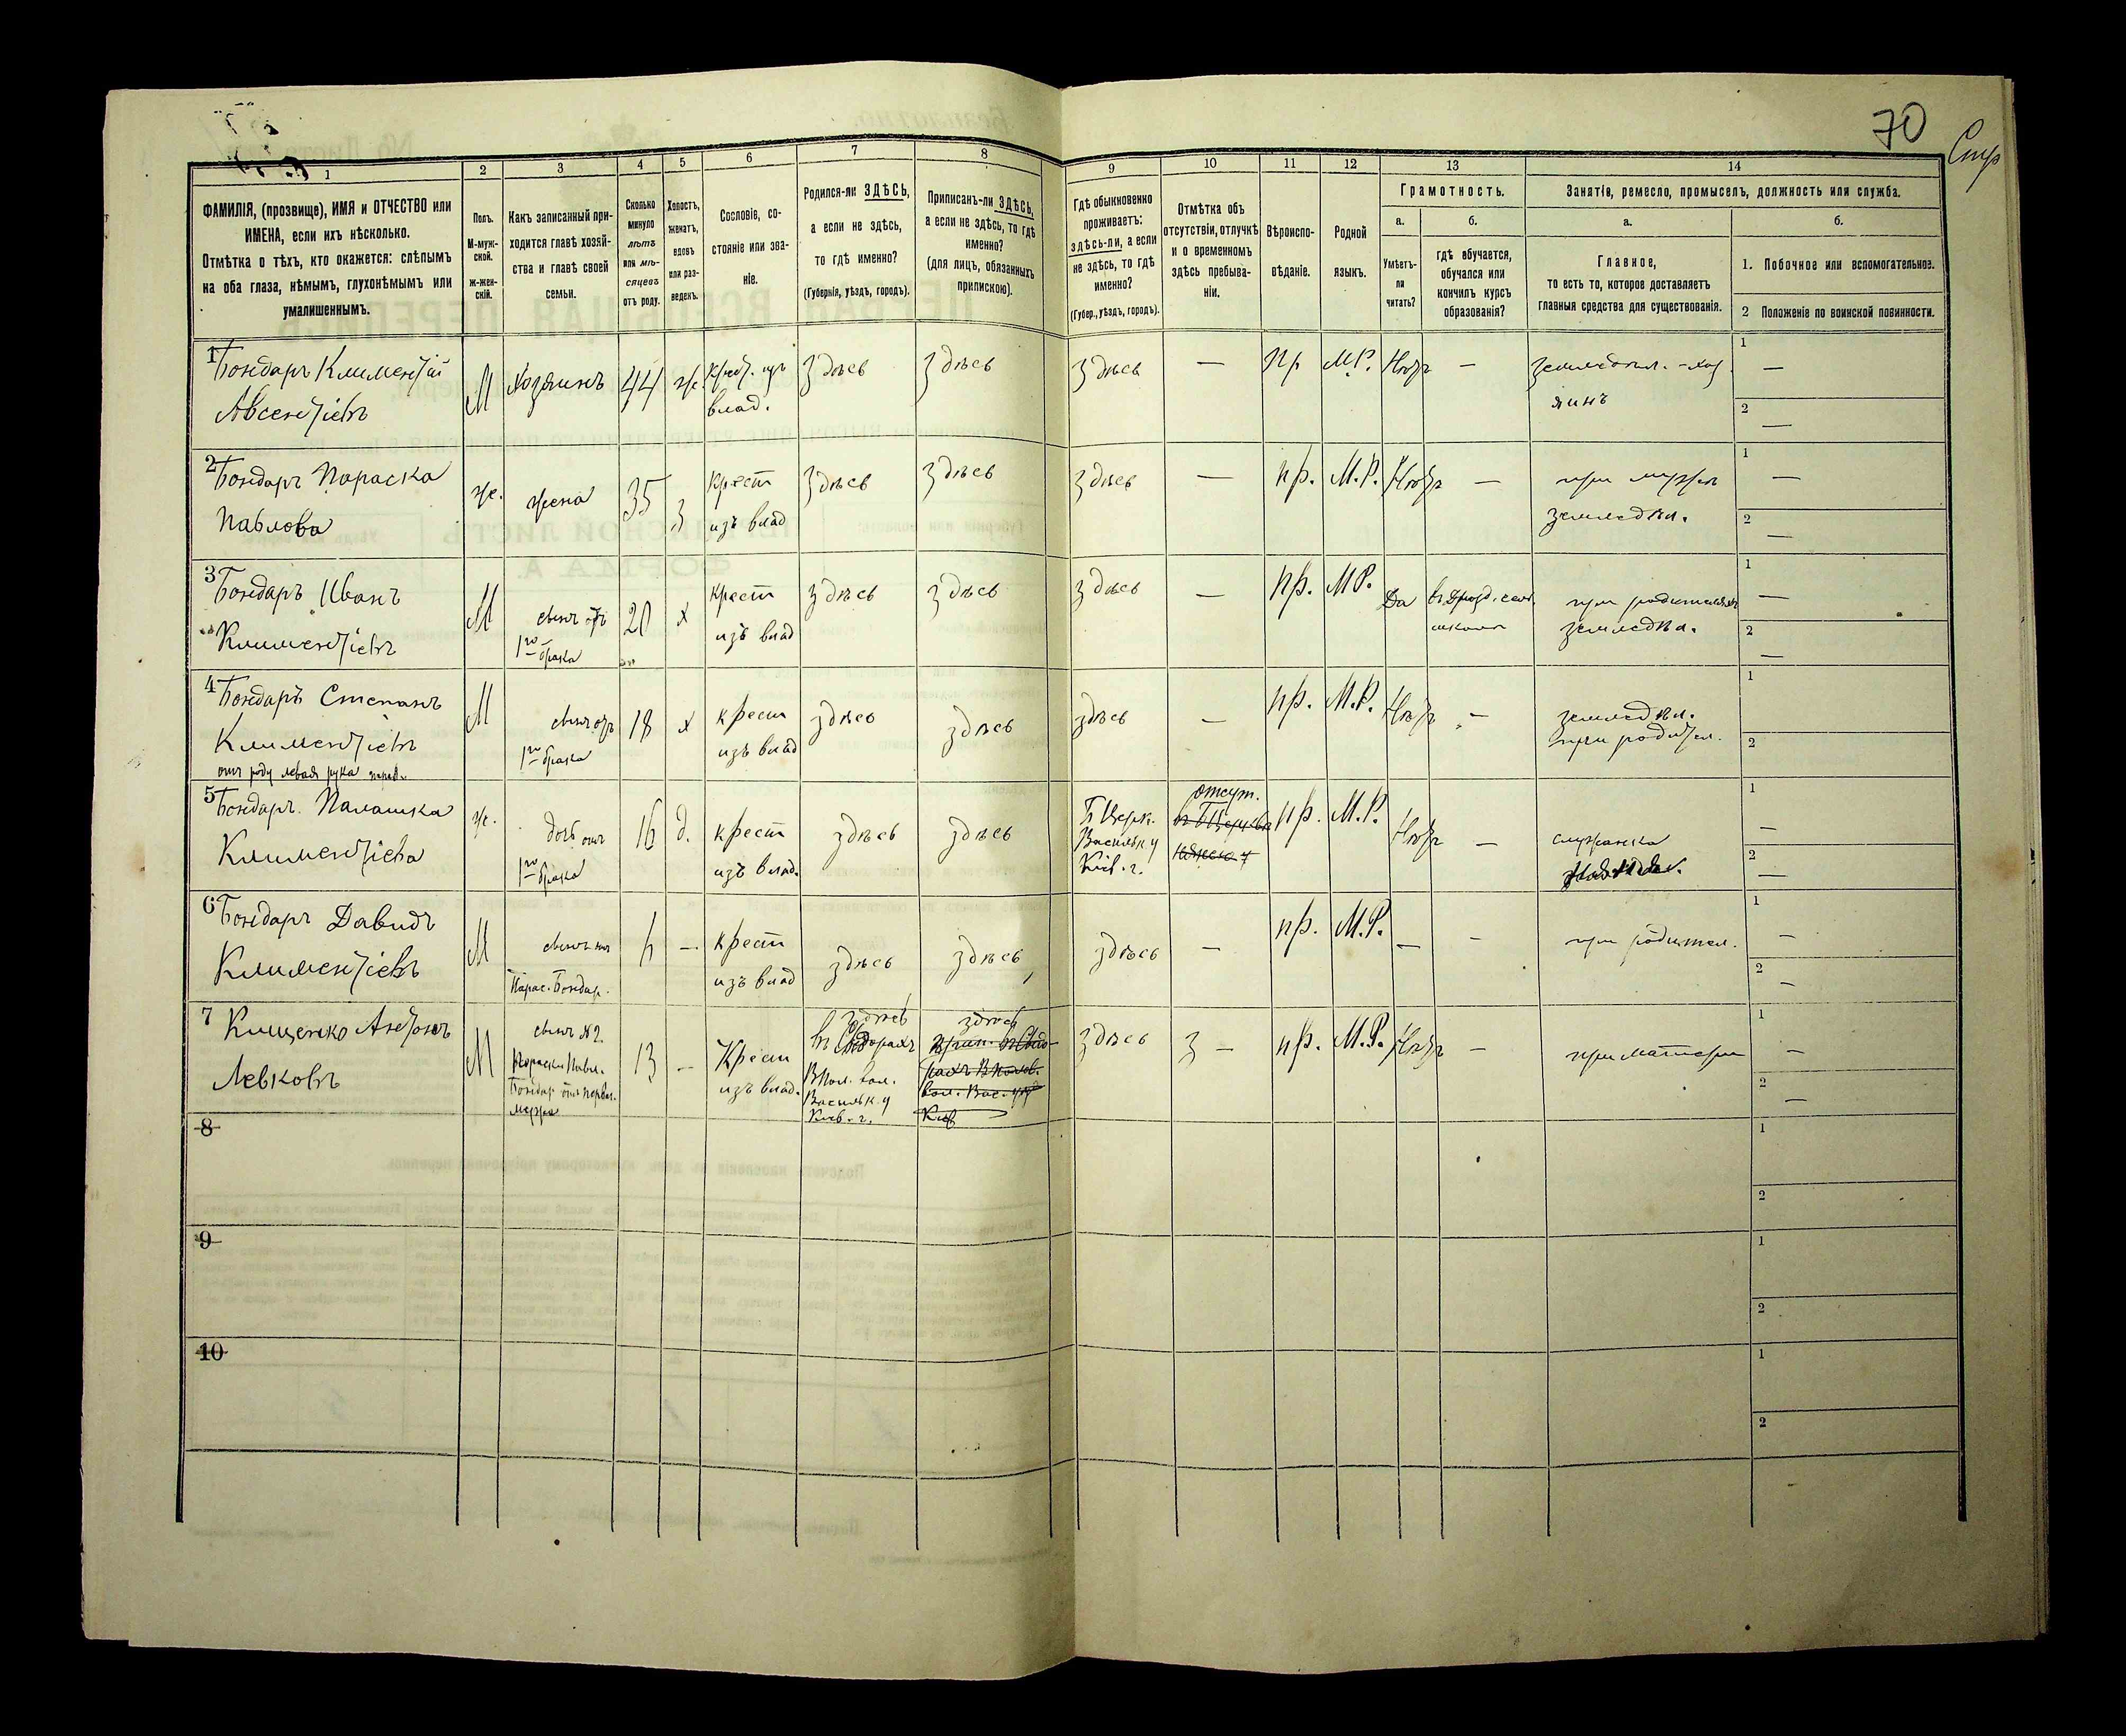 70
Стр
1 2 3 4 5 6 7 8 9 10 11 12 13 14
ФАМИЛІЯ, (прозвище), ИМЯ и ОТЧЕСТВО или
ИМЕНА, если ихъ нѣсколько.
Отмѣтка о тѣхъ, кто окажется: слѣпымъ
на оба глаза, нѣмымъ, глухонѣмымъ или
умалишеннымъ.
Полъ.
М-муж-
ской.
ж-жен-
скій.
Какъ записанный при-
ходится главѣ хозяй-
ства и главѣ своей
семьи.
Сколько
минуло
лѣтъ
или мѣ-
сяцевъ
отъ роду.
Холостъ,
женатъ,
вдовъ
или раз-
веденъ.
Сословіе, со-
стояніе или зва-
ніе.
Родился-ли ЗДѢСЬ,
а если не здѣсь,
то гдѣ именно?
(Губернія, уѣздъ, городъ).
Приписанъ-ли ЗДѢСЬ,
а если не здѣсь, то гдѣ
именно?
(для лицъ, обязанныхъ
припискою).
Гдѣ обыкновенно
проживаетъ:
здѣсь-ли, а если
не здѣсь, то гдѣ
именно?
(Губер., уѣздъ, городъ).
Отмѣтка объ
отсутствіи, отлучкѣ
и о временномъ
здѣсь пребыва-
ніи.
Вѣроиспо-
вѣданіе.
Родной
языкъ.
Грамотность.
а.
Умѣетъ-
ли
читать?
б.
гдѣ обучается,
обучался или
кончилъ курсъ
образованія?
Занятіе, ремесло, промыселъ, должность или служба.
а.
Главное,
то есть то, которое доставляетъ
главныя средства для существованія.
б.
1. Побочное или вспомогательное.
2 Положеніе по воинской повинности.
1 Бондаръ Климентій
Авсентіевъ
М
Хозяинъ
44
ж.
Крест. изъ
влад.
здѣсь
здѣсь
здѣсь
—
пр
М.Р.
Нѣтъ
—
земледѣл. - хоз
яинъ
1 —
2 —
2 Бондаръ Параска
Павлова
ж.
жена
35
З
крест
изъ влад
здѣсь
здѣсь
здѣсь
—
пр.
М.Р.
Нѣтъ
—
при мужѣ
земледѣл.
1 —
2 —
3 Бондаръ Иванъ
Климентіевъ
М
сынъ отъ
1го брака
20
х
крест
изъ влад
здѣсь
здѣсь
здѣсь
—
пр.
М.Р.
Да
въ Дрозд. сель.
школѣ
при родителяхъ
земледѣл.
1 —
2 —
4 Бондаръ Степанъ
Климентіевъ
отъ роду левая рука
М
сынъ отъ
1го брака
18
х
крест
изъ влад
здѣсь
здѣсь
здѣсь
—
пр.
М.Р.
Нѣтъ
—
земледѣл.
при родител.
1
2
5 Бондаръ. Палашка
Климентіева
ж.
дочь отъ
1го брака
16
д.
крест
изъ влад.
здѣсь
здѣсь
Б Церк.
Васильк у
Кіев. г.
отсут.
въ Б Церкви
пр.
М.Р.
Нѣтъ
—
служанка
1 —
2 —
6 Бондаръ Давидъ
Климентіевъ
М
сынъ
Парас. Бондар.
—
крест
изъ влад
здѣсь
здѣсь
здѣсь
—
пр.
М.Р.
—
—
при родител.
1 —
2 —
7 Кищенко Антонъ
Левковъ
М
сынъ №2.
Параски Павл.
Бондар. отъ перваг.
мужа
13
—
Крест
изъ влад.
здѣсь
вол.
Васильк. у
Кіев. г.
здѣсь
здѣсь
—
пр.
М.Р.
Нѣтъ
—
при матери
1 —
2 —
8
1
2
9
1
2
10
1
2